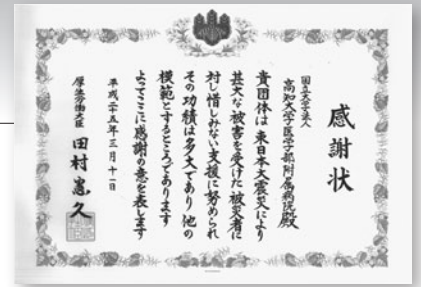 感謝状
国立大学法人
高知大学医学部附属病院殿
貴団体は東日本大震災により
甚大な被害を受けた被災者に
対し惜しみない支援に努められ
その功績は多大であり他の
模範とするところであります
よってここに感謝の意を表します
平成二十五年三月十一日
厚生労働大臣 田村憲久